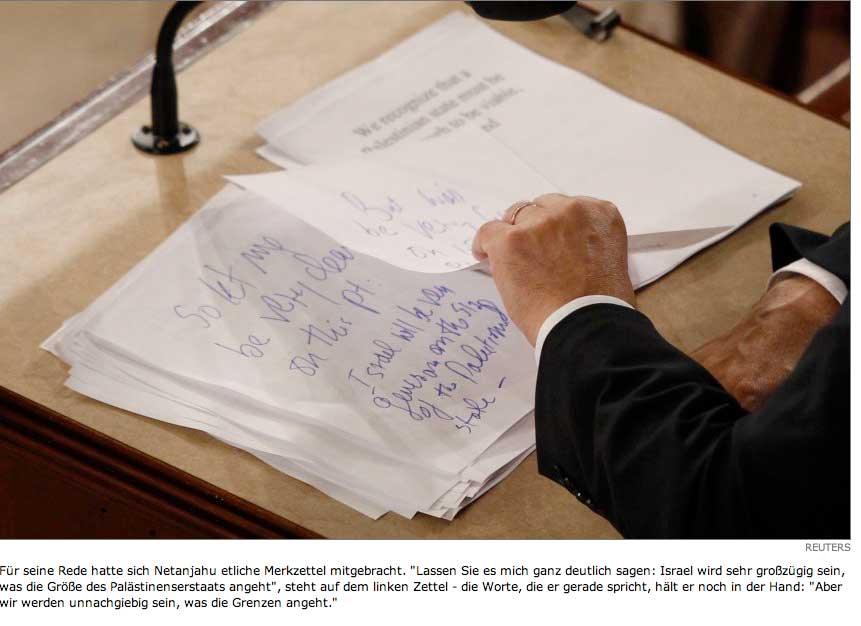 We recognize that a
Palestinian state must be
to be viable,
But
be very
on
So let me
be very clear
on this pt:
Israel will be very
generous on the size
of the Palestinian
state –
REUTERS
Für seine Rede hatte sich Netanjahu etliche Merkzettel mitgebracht. "Lassen Sie es mich ganz deutlich sagen: Israel wird sehr großzügig sein,
was die Größe des Palästinenserstaats angeht", steht auf dem linken Zettel - die Worte, die er gerade spricht, hält er noch in der Hand: "Aber
wir werden unnachgiebig sein, was die Grenzen angeht."